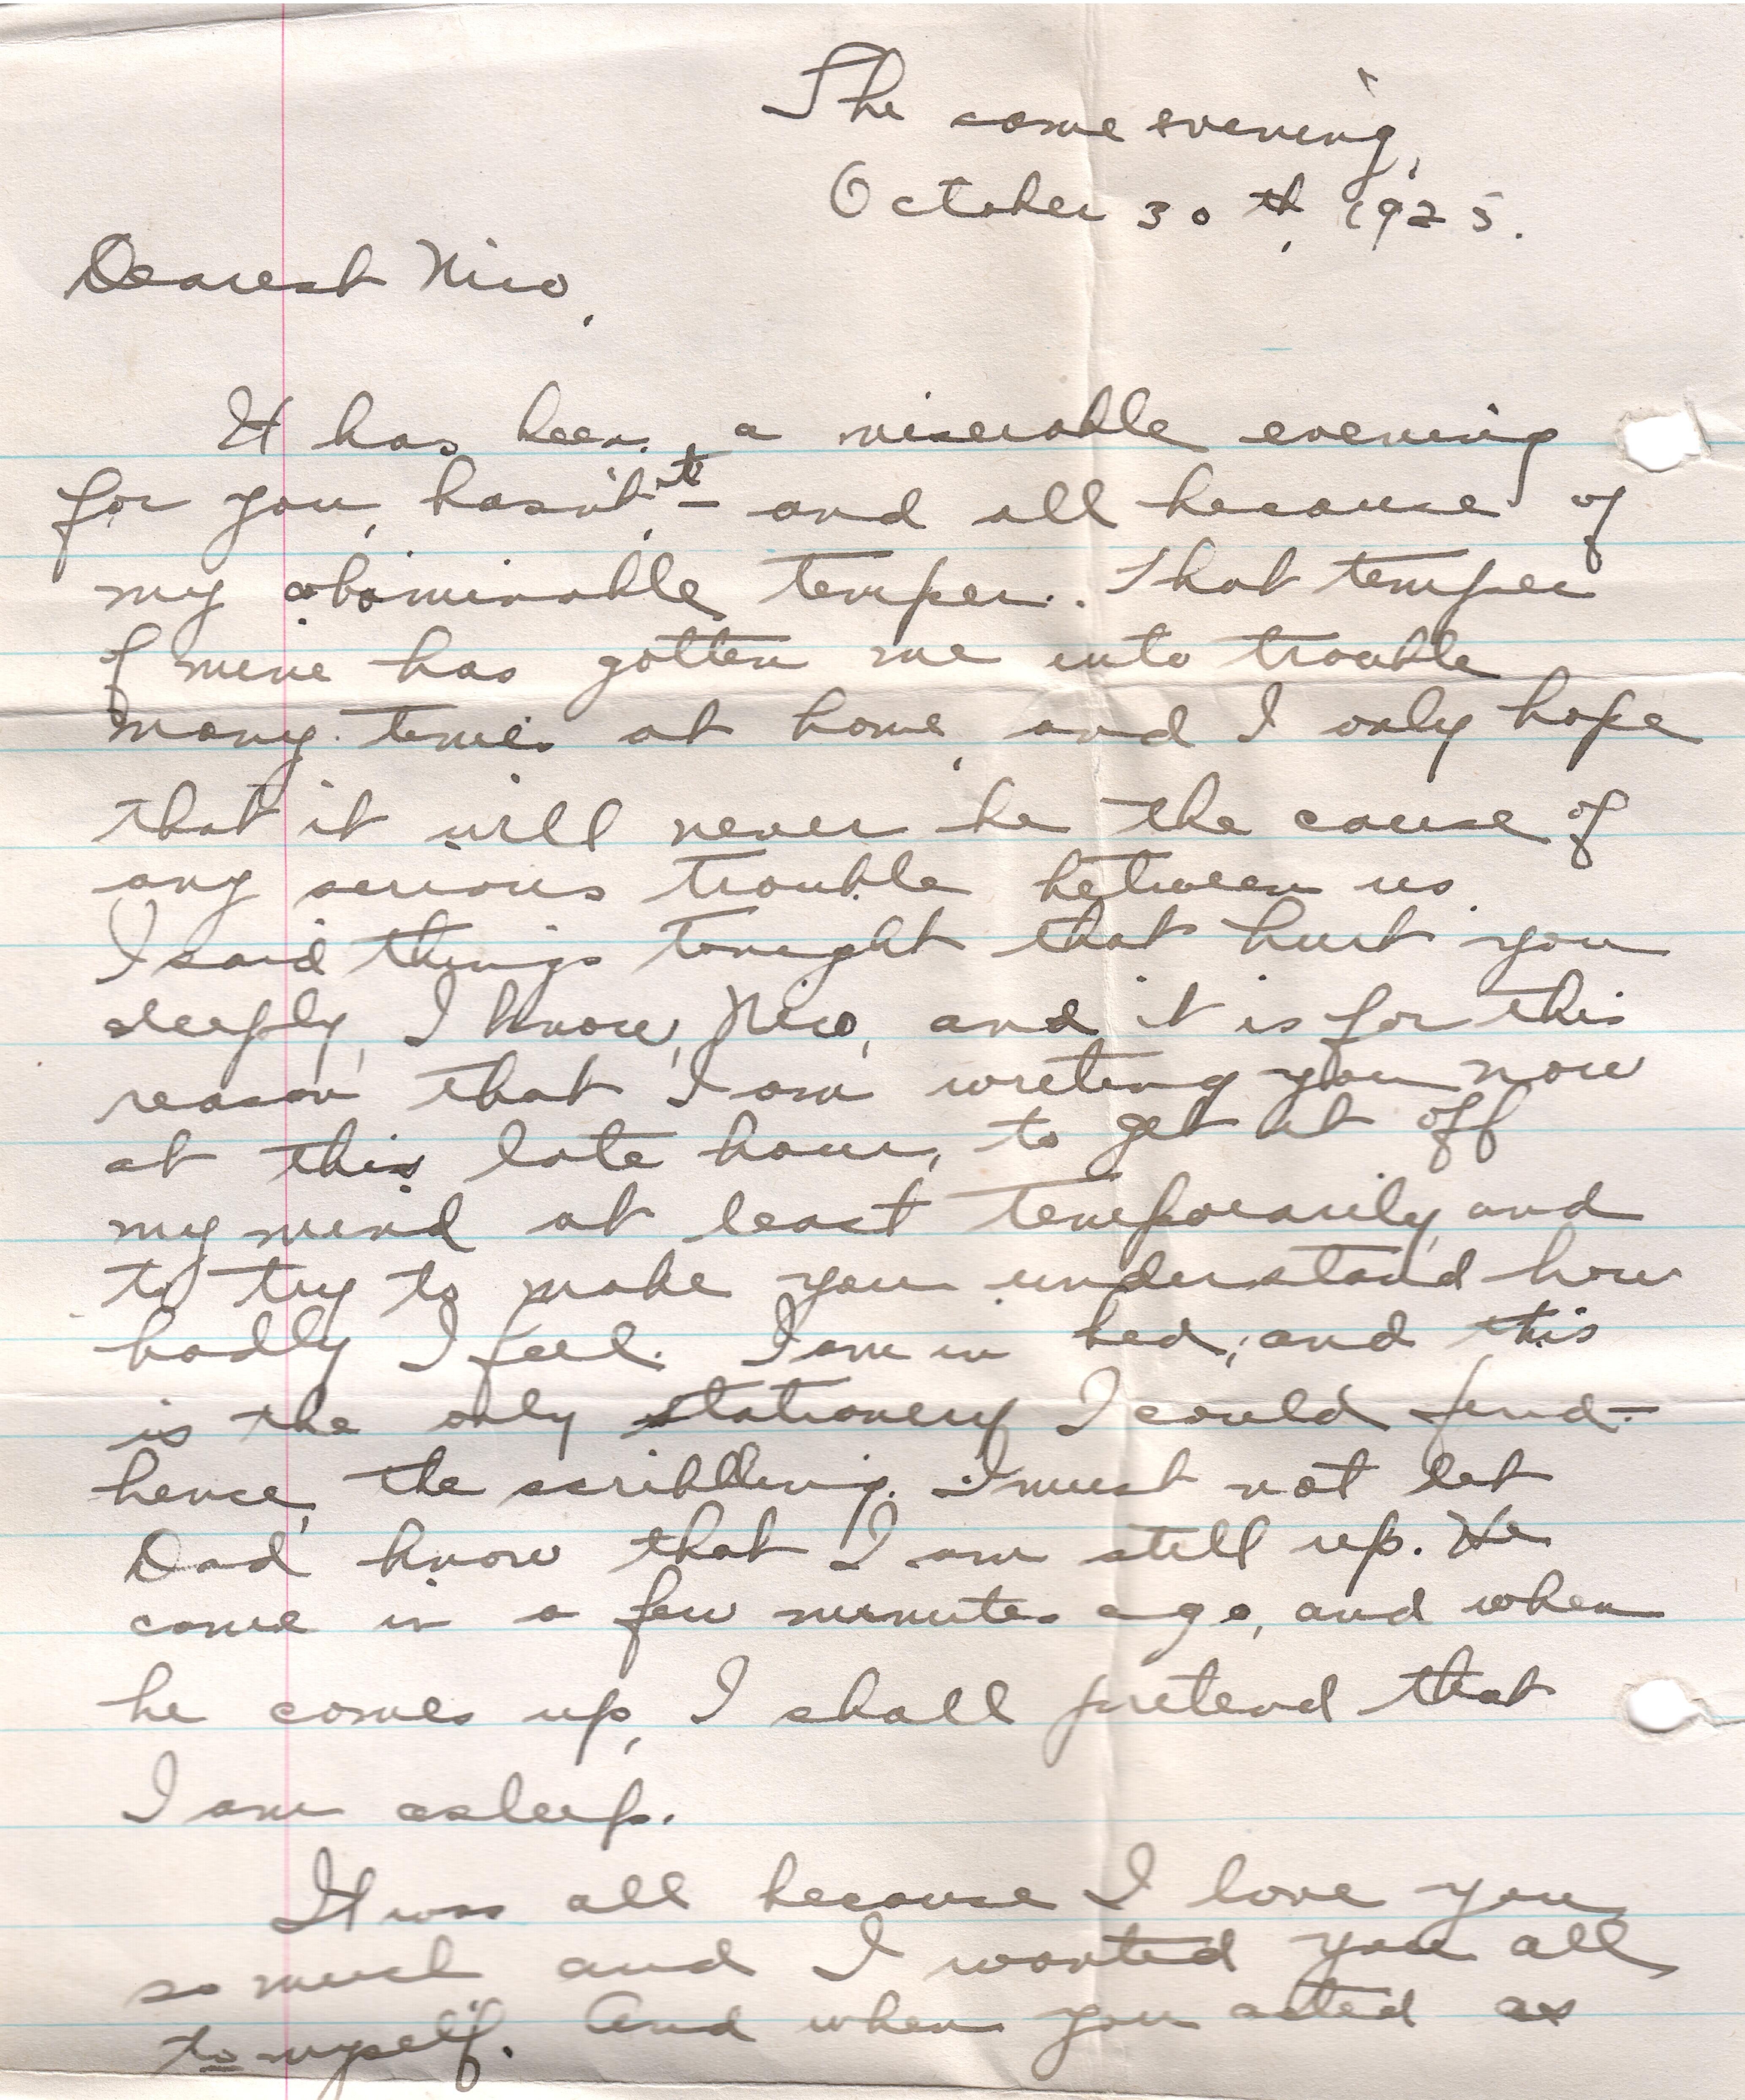 The same evening,
October 30th, 1925.
Dearest Nico,
It has been a miserable evening
for you, hasn't it, - and all because of
my abominable temper. That temper
of mine has gotten me into trouble
many times at home, and I only hope
that it will never be the cause of
any serious trouble between us.
I said things tonight that hurt you
deeply, I know, Nico, and it is for this
reason that I am writing you now
at this late hour, to get it off
my mind at least temporarily, and
to try to make you understand how
badly I feel. I am in bed, and this
is the only stationery I could find -
hence, the scribbling. I must not let
Dad know that I am still up. He
came in a few minutes ago, and when
he comes up, I shall pretend that
I am asleep.
It was all because I love you
so much and I wanted you all
to myself. And when you acted as